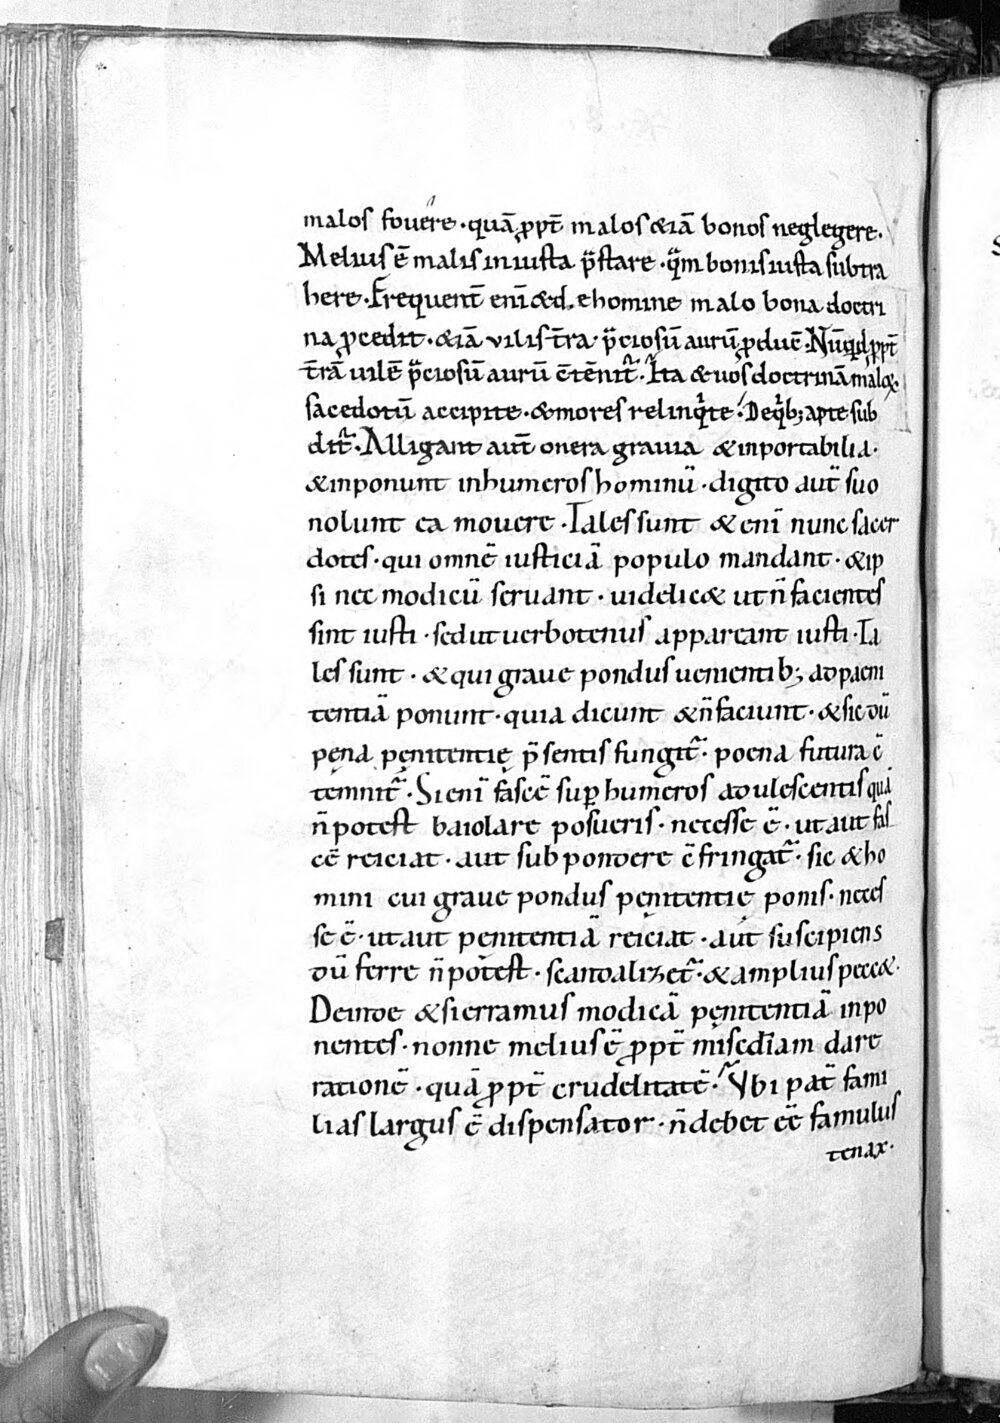 malos fovere · quā ꝓpt̄ malos &iā bonos neglegere ·
Melius ē malis iniusta p̄stare · q̄m bonis iusta subtra
here · Frequent̄ eni &de homine malo bona doctri
na ꝓcedit · &iā vilis t̄ra p̄ciosū aurū ꝓducē · Nūqid ꝓpt̄
t̄rā vilē p̄ciosū aurū c̄tēnit᷑ · Ita & uos doctrinā maloꝝ
sacedotū accipite · & mores relinq̄te · De qͥbꝫ apte sub
dit᷑ · Alligant aut̄ onera gravia & inportabilia ·
& inponunt in humeros hominū · digito aut̄ suo
nolunt ea movere · Tales sunt & enī nunc sacer
dotes · qui omnē iusticiā populo mandant · & ip
si nec modicū servant · uidelic& ut n̄ facientes
sint iusti · sed ut verbotenus appareant iusti · Ta
les sunt · & qui grave pondus venientibꝫ ad paeni
tentiā ponunt · quia dicunt & n̄ faciunt · & sic dū
pena pęnitentię p̄sentis fungit᷑ · poena futura c̄
temnit᷑ · Si enī fascē suꝑ humeros adulescentis quā
n̄ potest baiolare posueris · necesse ē · ut aut fas
cē reiciat · aut sub pondere c̄fringat᷑ · sic & ho
mini cui grave pondus pęnitentię ponis · neces
se ē · ut aut pęnitentiā reiciat · aut suscipiens
dū ferre n̄ potest · scandalizet᷑ · & amplius pecc& ·
Deinde & si erramus modicā pęnitentiā inpo
nentes · nonne melius ē ꝓpt̄ misc̄diam dare
rationē · quā ꝓpt̄ crudelitatē · Ubi pat̄ fami
lias largus ē dispensator · n̄ debet eē famulus
tenax ·